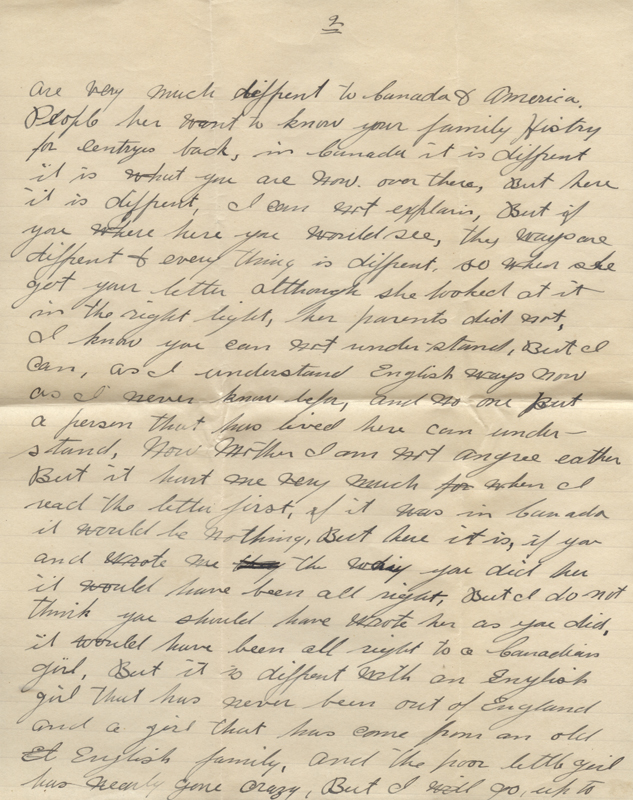 2
are very much diffrent to Canada & America.
People her want to know your family Histry
for centrys back, in Canada it is diffrent
it is what you are now. over there, But here
it is diffrent, I can not explain, But if
you where here you would see, they ways are
diffrent & every thing is diffrent. so when she
got your letter although she looked at it
in the right light, her parents did not,
I know you can not under-stand, But I
can, as I understand English ways now
as I never know befor, and no one But
a person that has lived here can under-
stand, Now Mother I am not angree eather
But it hurt me very much for when I
read the letter first, if it was in Canada
it would be nothing, But here it is, if you
and wrote me the way you did her
it would have been all right, But I do not
think you should have wrote her as you did,
it would have been all right to a Canadian
girl, But it is diffrent with an English
girl that has never been out of England
and a girl that has come from an old
English family, and the poor little girl
has nearly gone crazy, But I will go, up to